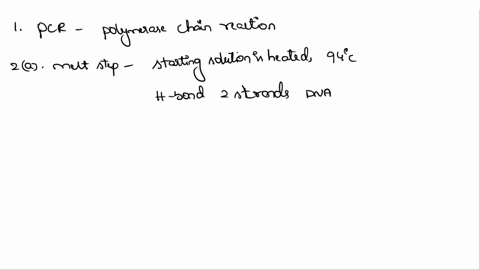 1. PCR - polymerase chain reaction
2(a). melt step - starting solution is heated, 94°C
H-bond 2 strands DNA